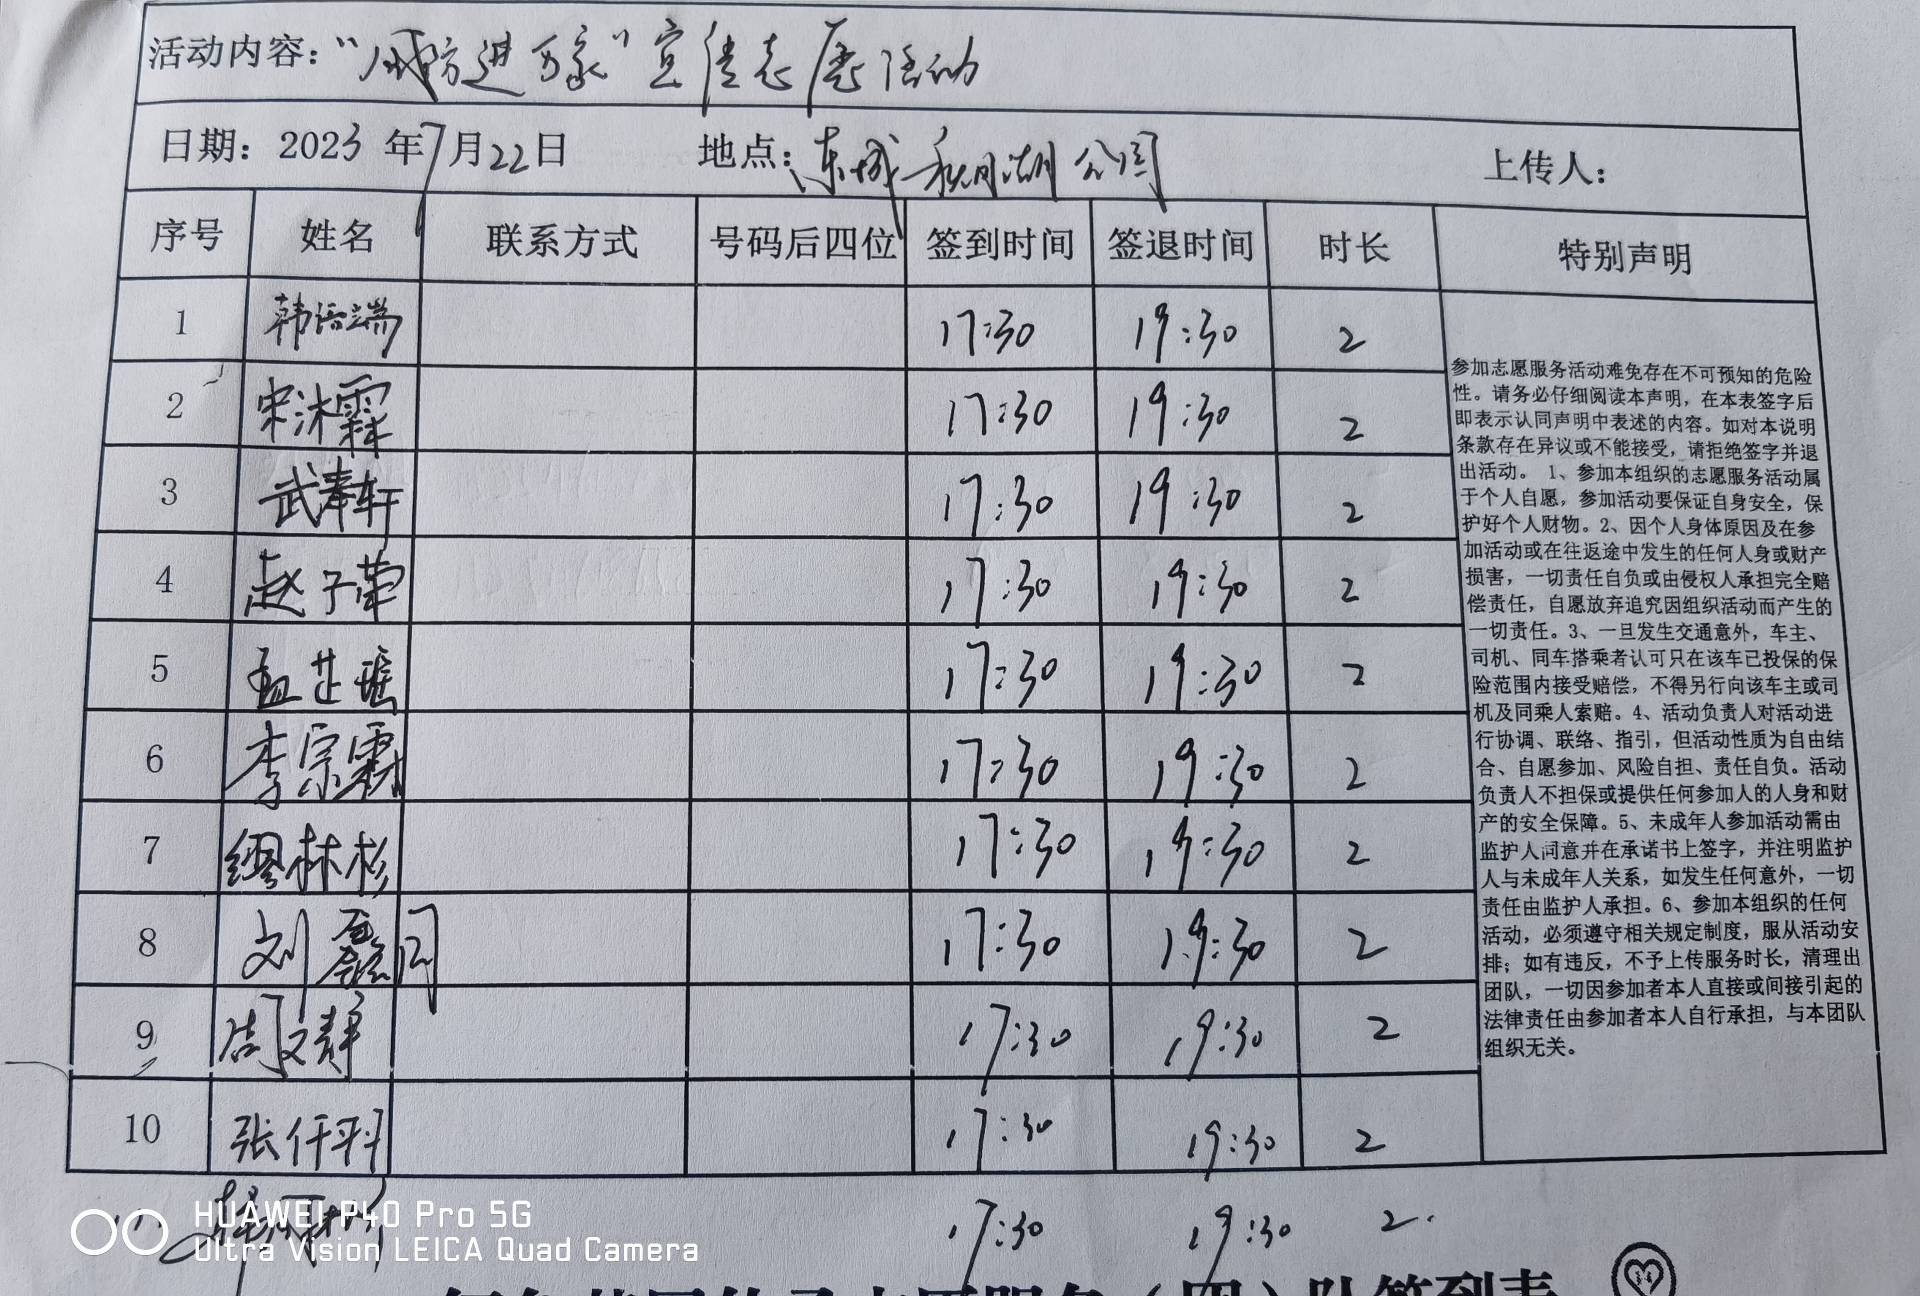 活动内容：“人民防进万家”宣传志愿活动
日期：2023年7月22日 地点：东城秋月湖公园 上传人：
序号 姓名 联系方式 号码后四位 签到时间 签退时间 时长 特别声明
1 韩语端 17:30 19:30 2
2 宋沐霖 17:30 19:30 2
3 武奉轩 17:30 19:30 2
4 赵子荣 17:30 19:30 2
5 孟芷瑶 17:30 19:30 2
6 李宗霖 17:30 19:30 2
7 缪林杉 17:30 19:30 2
8 刘鑫同 17:30 19:30 2
9 周文静 17:30 19:30 2
10 张仟羽 17:30 19:30 2
11 17:30 19:30 2.
参加志愿服务活动难免存在不可预知的危险
性。请务必仔细阅读本声明，在本表签字后
即表示认同声明中表述的内容。如对本说明
条款存在异议或不能接受，请拒绝签字并退
出活动。 1、参加本组织的志愿服务活动属
于个人自愿，参加活动要保证自身安全，保
护好个人财物。2、因个人身体原因及在参
加活动或在往返途中发生的任何人身或财产
损害，一切责任自负或由侵权人承担完全赔
偿责任，自愿放弃追究因组织活动而产生的
一切责任。3、一旦发生交通意外，车主、
司机、同车搭乘者认可只在该车已投保的保
险范围内接受赔偿，不得另行向该车主或司
机及同乘人索赔。4、活动负责人对活动进
行协调、联络、指引，但活动性质为自由结
合、自愿参加、风险自担、责任自负。活动
负责人不担保或提供任何参加人的人身和财
产的安全保障。5、未成年人参加活动需由
监护人同意并在承诺书上签字，并注明监护
人与未成年人关系，如发生任何意外，一切
责任由监护人承担。6、参加本组织的任何
活动，必须遵守相关规定制度，服从活动安
排；如有违反，不予上传服务时长，清理出
团队，一切因参加者本人直接或间接引起的
法律责任由参加者本人自行承担，与本团队
组织无关。
HUAWEI P40 Pro 5G
Ultra Vision LEICA Quad Camera
（四）队签到表